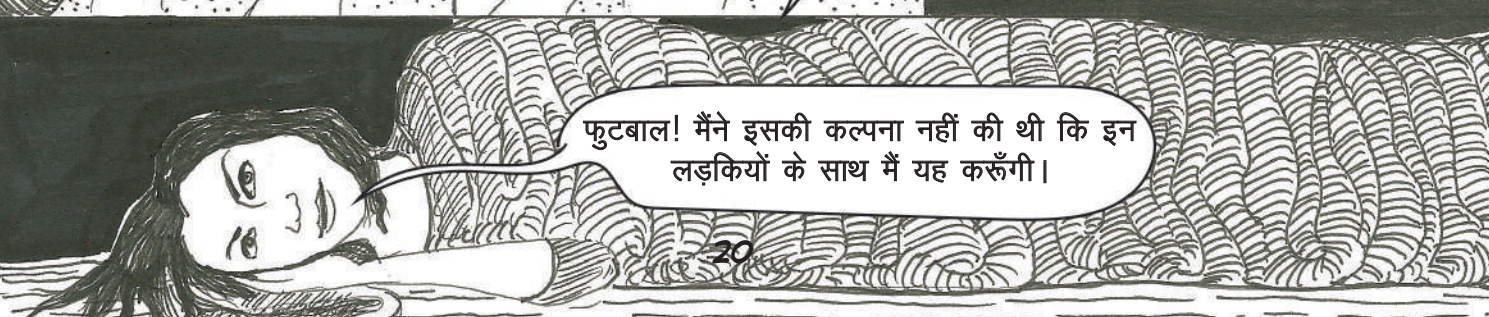 फुटबाल! मैंने इसकी कल्पना नहीं की थी कि इन
लड़कियों के साथ मैं यह करूँगी।
20